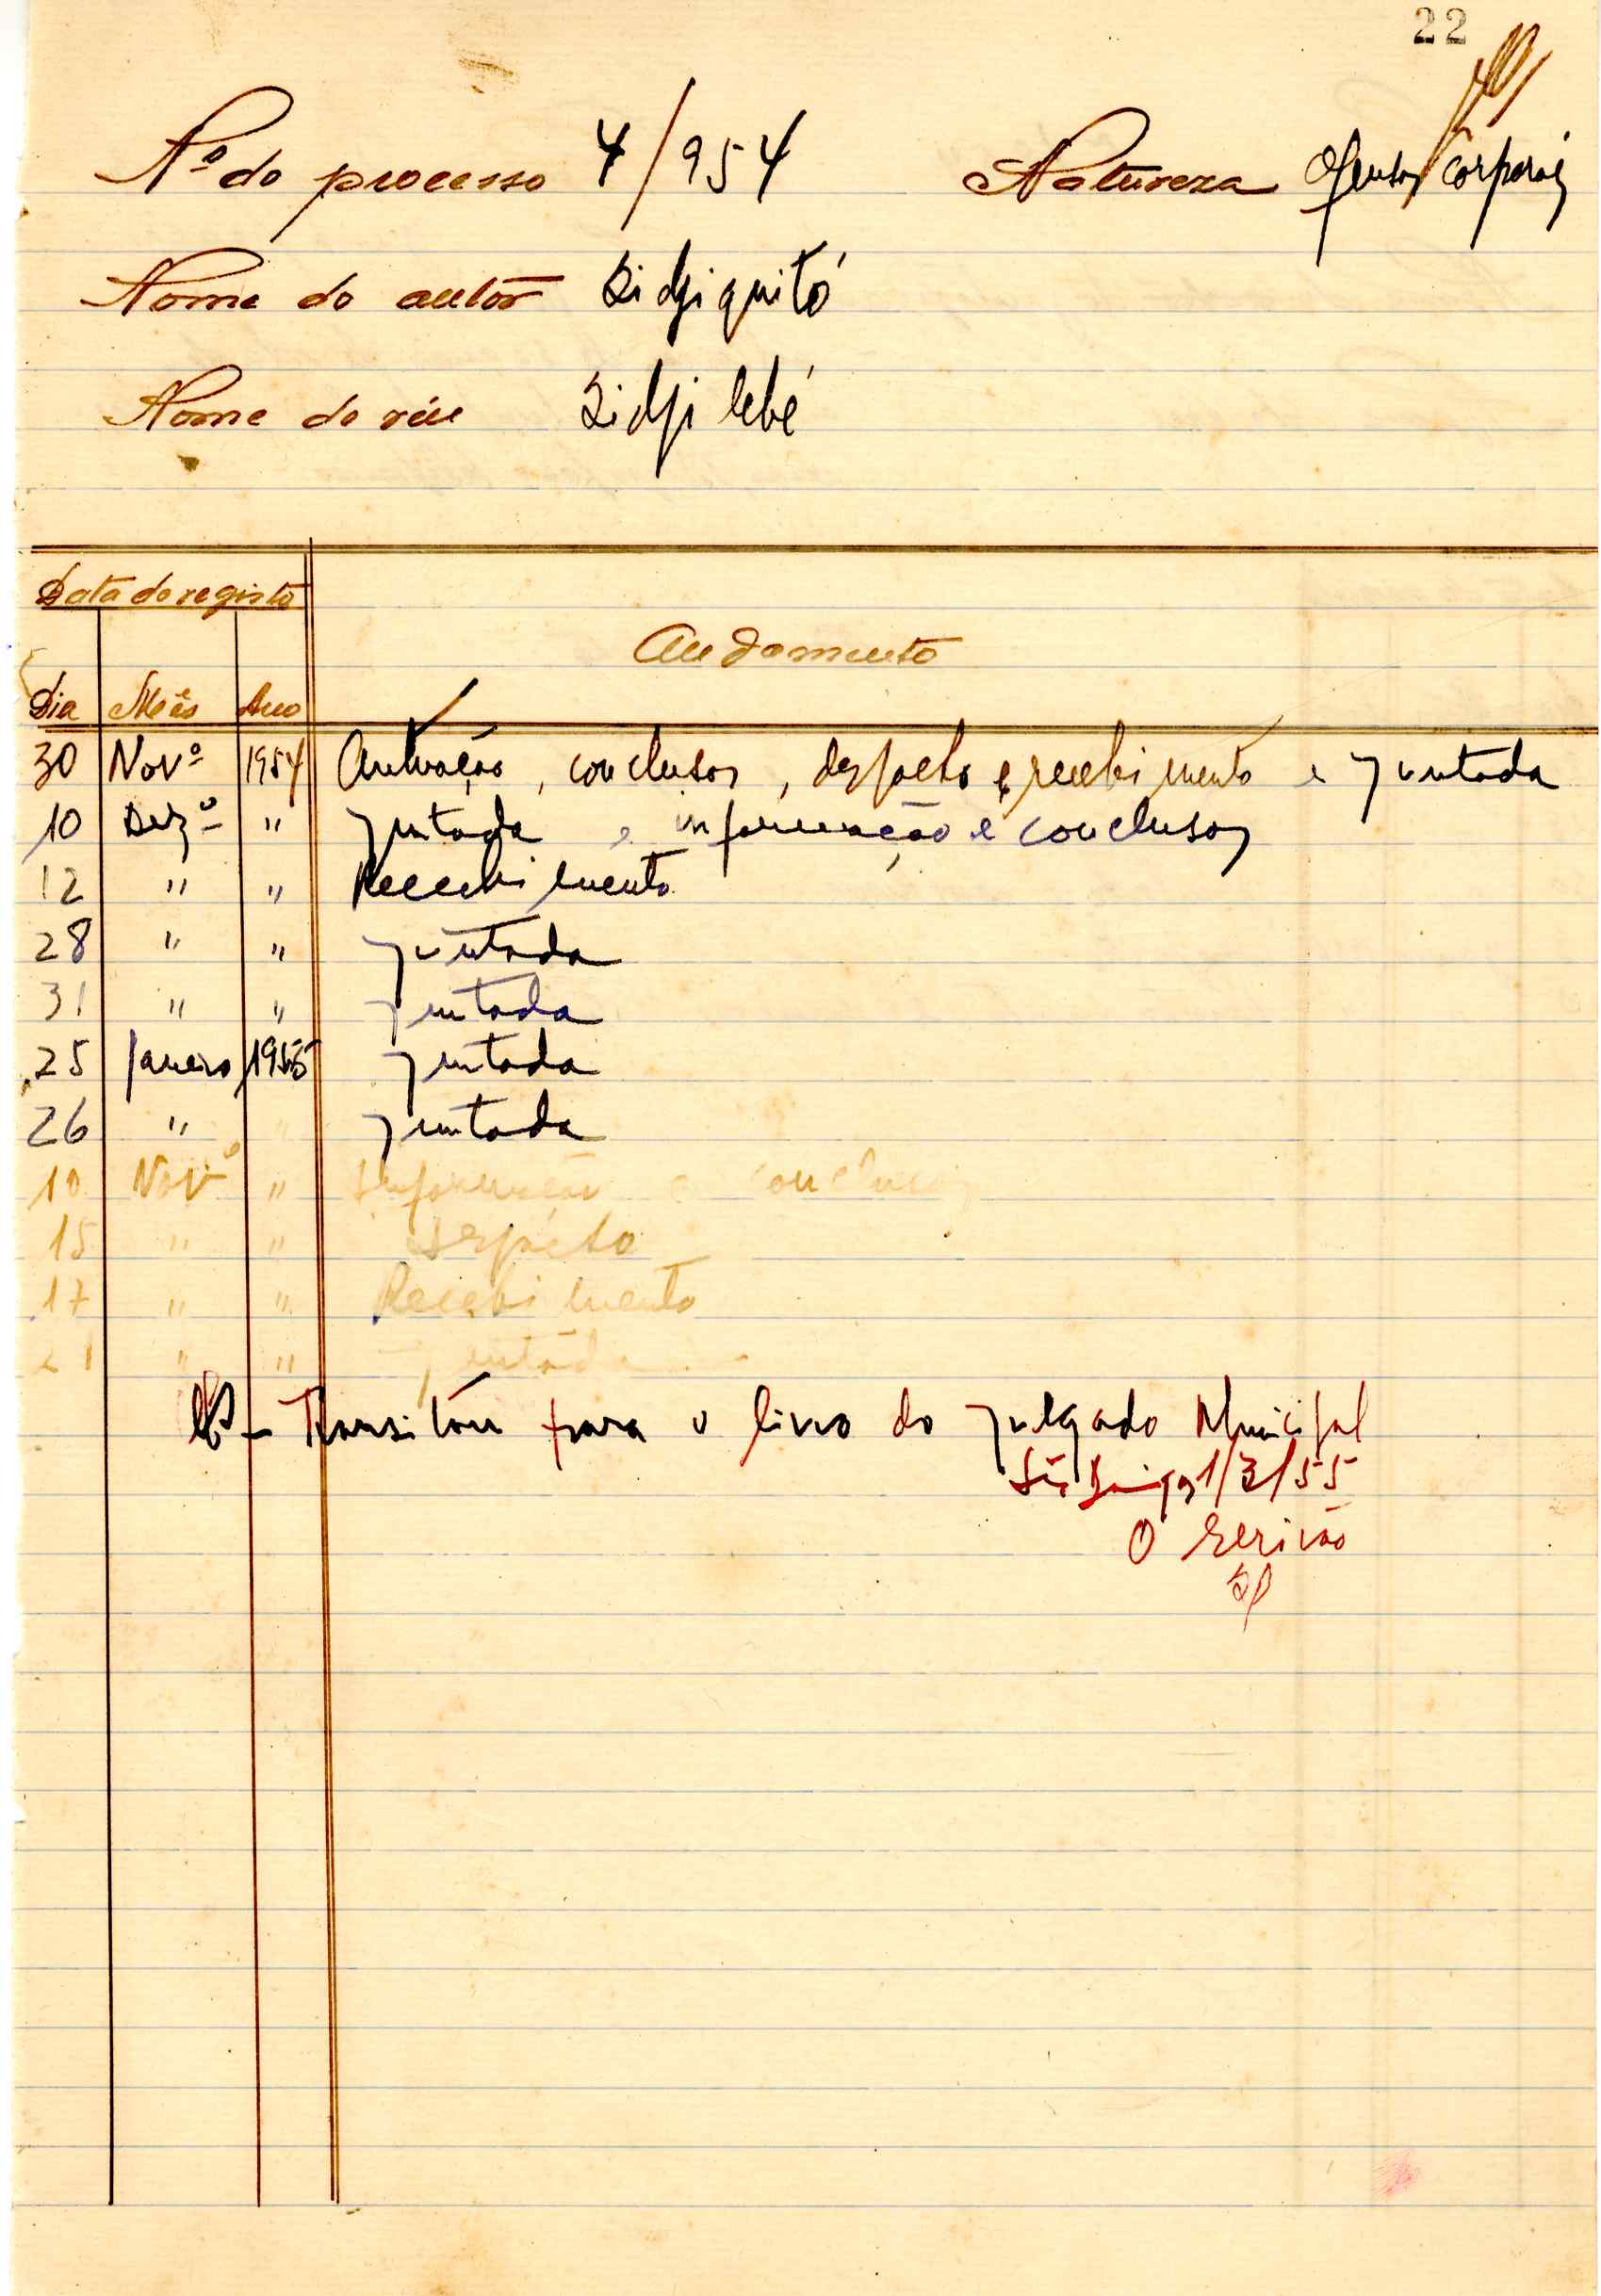 22
Nº do processo 4/954 Natureza Ofensas Corporais
Nome do autor Sidjiquitó
Nome do réu Sidji lebé
Data do registo
Andamento
Dia Mês Ano
30 Novº 1954 Autuação, conclusos, despacho e recebimento e juntada
10 Dezº " juntada e informação e conclusos
12 " " Recebimento
28 " " juntada
31 " " juntada
25 Janeiro 1955 juntada
26 " " juntada
10 Novº " Informação e conclusos
15 " " despacho
17 " " Recebimento
21 " " juntada
Transitou para o livro do julgado Municipal
São Domingos 1/3/55
O escrivão